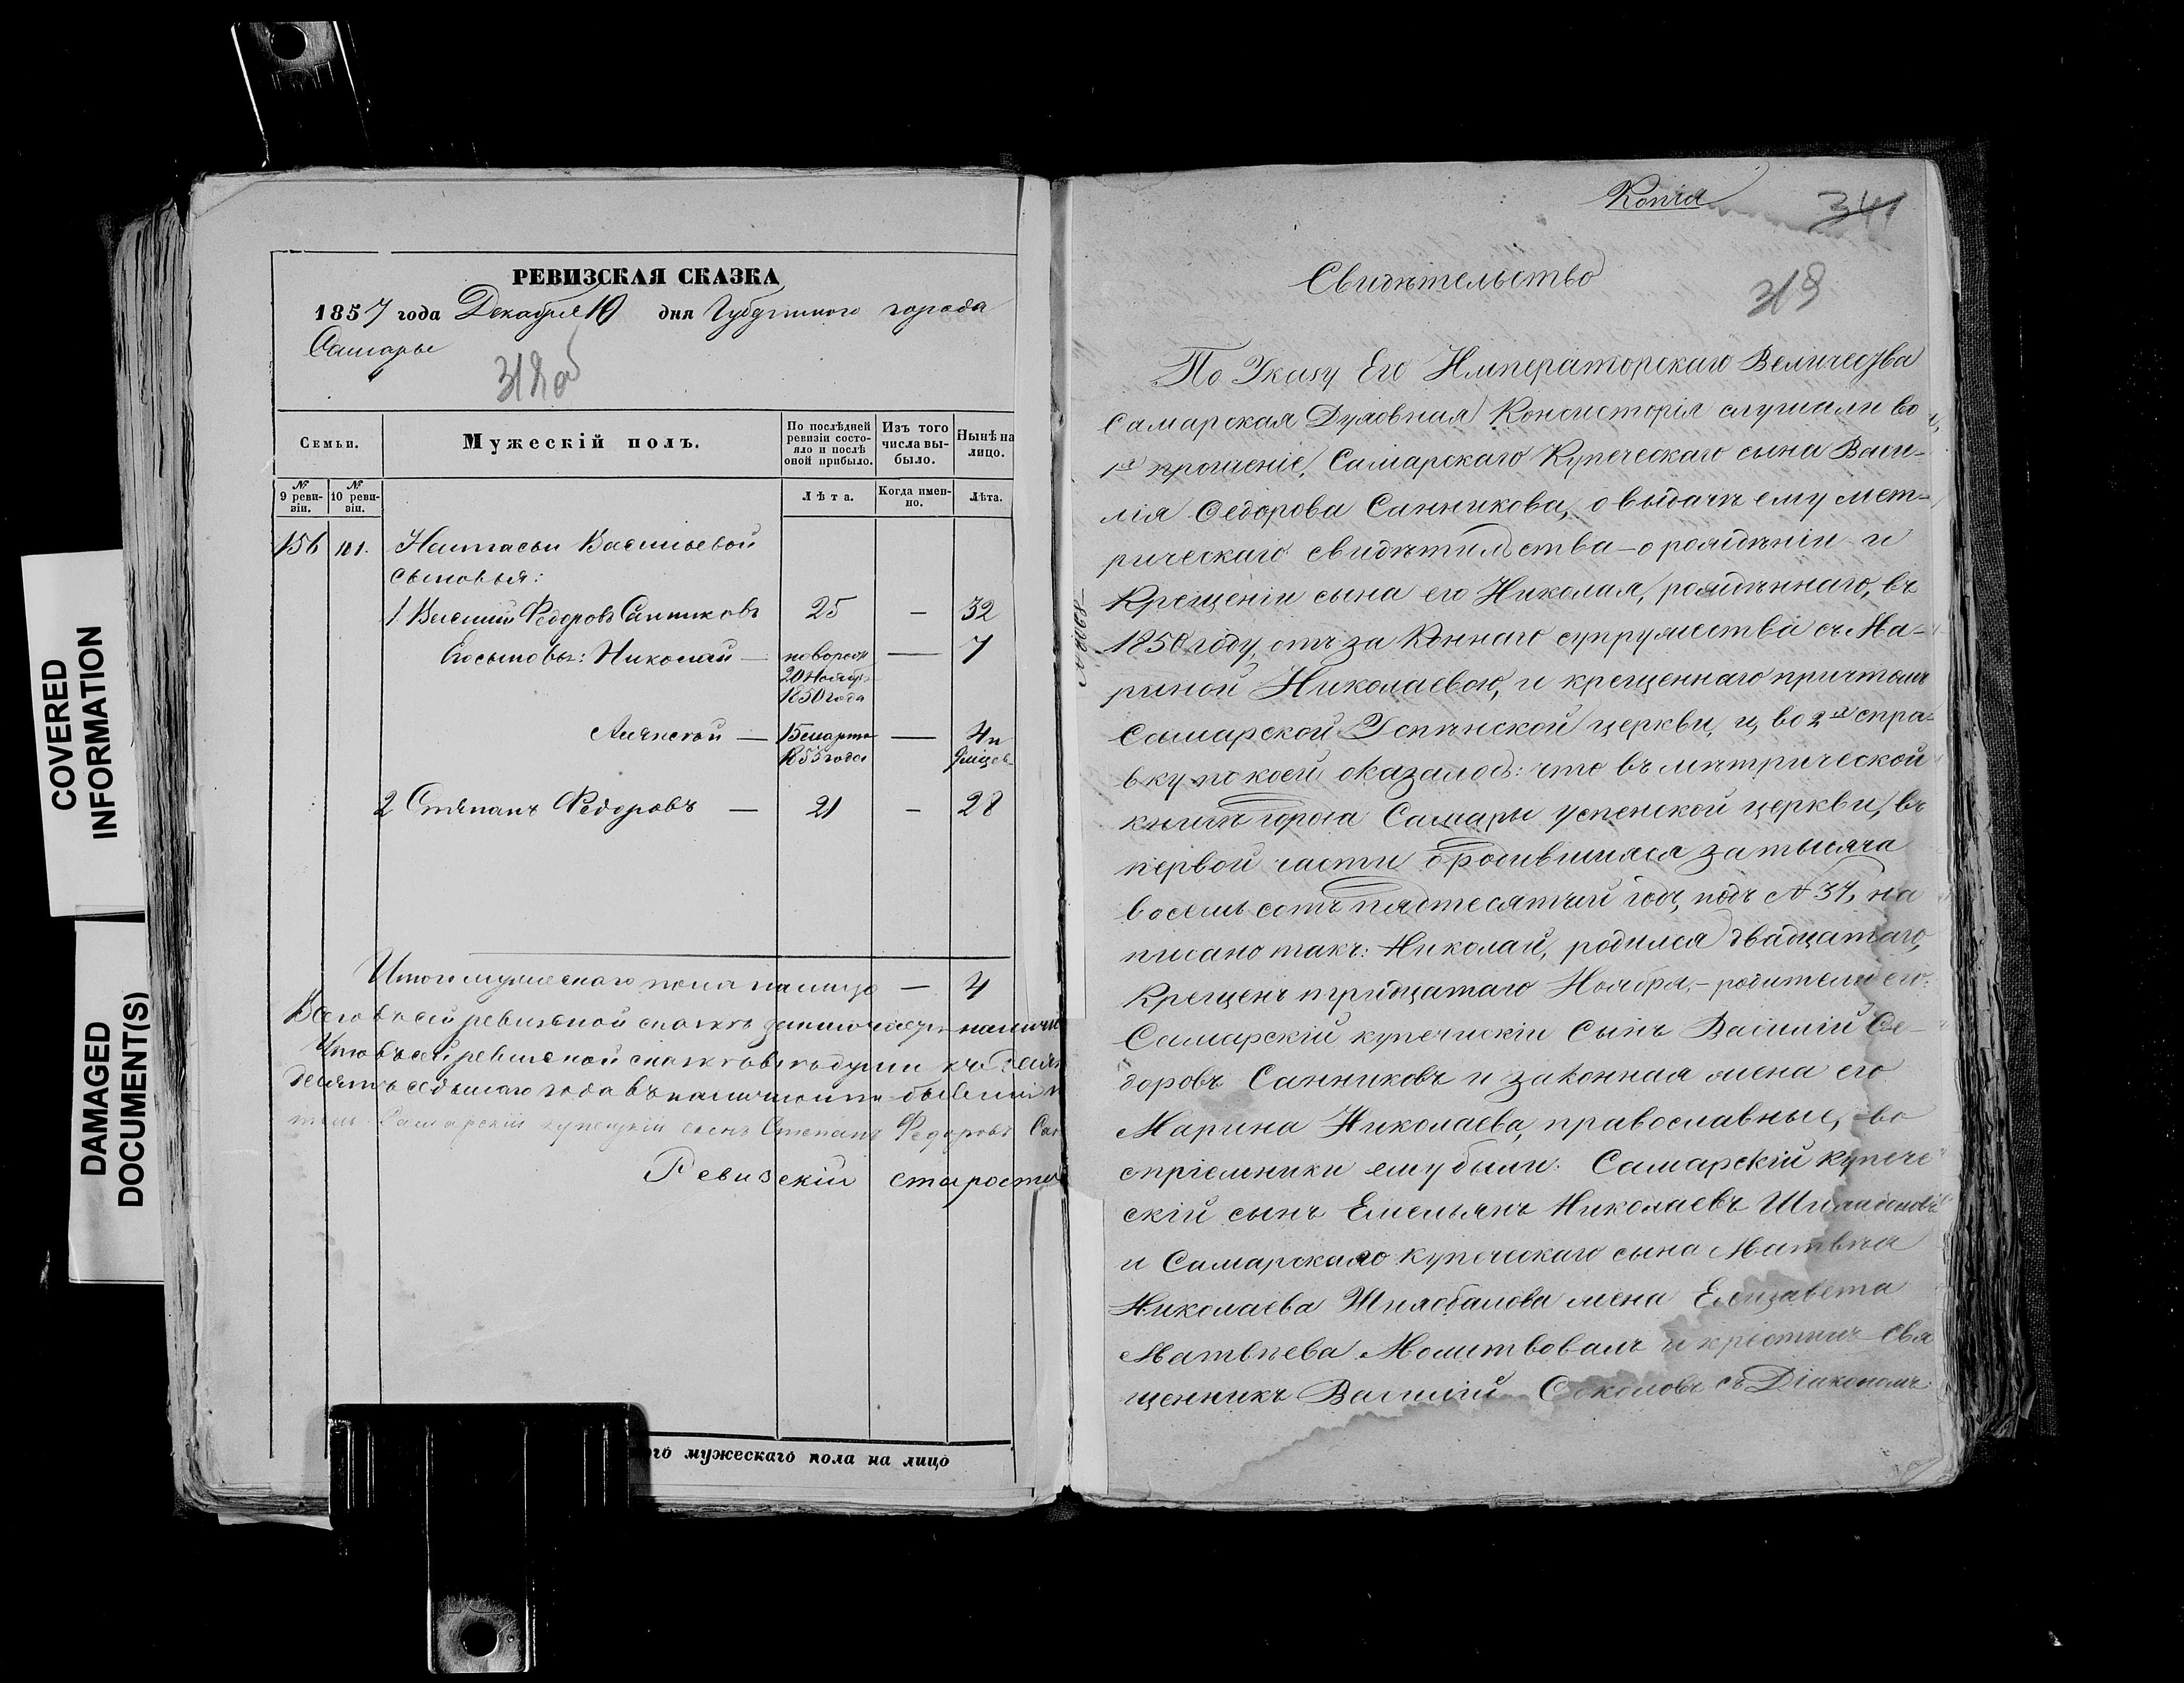 COVERED
INFORMATION
DAMAGED
DOCUMENT(S)
РЕВИЗСКАЯ СКАЗКА
1857 года Декабря 10 дня Губернскаго города
Самары
318об
Семьи.
Мужескій полъ.
По послѣдней ревизіи состояло и послѣ оной прибыло.
Изъ того числа выбыло.
Нынѣ на лицо.
№ 9 ревизіи.
№ 10 ревизіи.
Лѣта.
Когда именно.
Лѣта.
156 101. Настасьи Васильевой
сыновья:
1 Василий Федоровъ Санниковъ 25 — 32
Его сыновья: Николай — новорож 20 Ноября 1850 года — 7
Алексей — 15 марта 1853 года — 4 и 9 месе
2 Степанъ Федоровъ — 21 — 28
Итого мужескаго пола налицо — 4
Всего въ сей ревизской сказкѣ заключается налич
Что въ сей ревизской сказкѣ все души къ
десятъ седьмаго года въ наличности
Самарскій купецкій сынъ Степанъ Федоровъ Сан
Ревизскій староста
го мужескаго пола на лицо
Копія
341
319
Свидѣтельство
По Указу Его Императорскаго Величества
Самарская Духовная Консисторія слушали во
1е прошеніе, Самарскаго Купеческаго сына Васи-
лія Ѳедорова Санникова, о выдачѣ ему мет-
рическаго свидѣтельства о рождѣніи и
Крещеніи сына его Николая, рождѣннаго, въ
1850 году, отъ законнаго супружества съ Ма-
риной Николаевою, и крещеннаго причтомъ
Самарской Успѣнской церкви, и, во 2е спра-
вку по коей оказалось: что въ мѣтрической
книгѣ города Самары Успенской церкви, въ
первой части о родившихся за тысяча
восемь сотъ пядтесятый годъ, подъ № 34, на
писано такъ: Николай, родился двадцатаго,
Крещенъ тридцатаго Ноября,- родители его:
Самарскій купечискіи Сынъ Василій Ѳе-
доровъ Санниковъ и законная жена его
Марина Николаева, православные, во
спріемники ему были: Самарскій купече
скій сынъ Емельянъ Николаевъ
и Самарскаго купеческаго сына Матвѣя
Николаева жена Елизавета
Матвѣева. Молитвовалъ и крестилъ Свя
щенникъ Василій Соколовъ съ Діакономъ